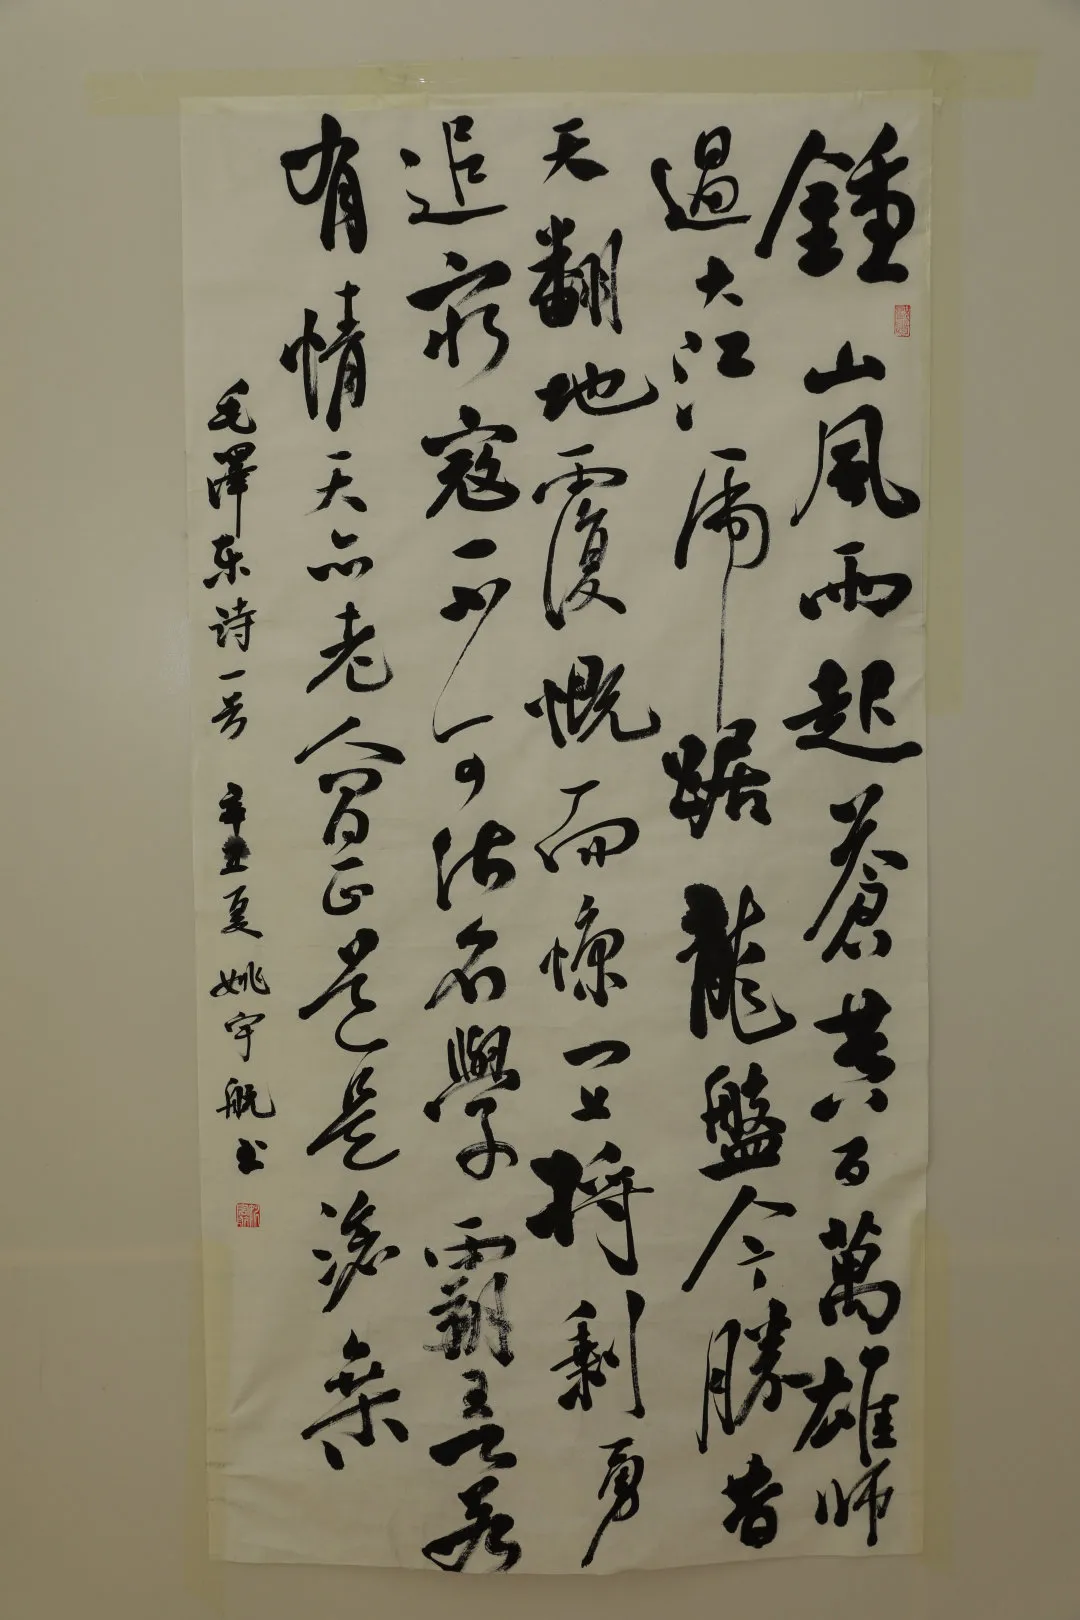 鍾山風雨起蒼黄百萬雄師
過大江虎踞龍盤今勝昔
天翻地覆慨而慷宜將剩勇
追窮寇不可沽名學霸王天若
有情天亦老人間正道是滄桑
毛澤东诗一首 辛丑夏 姚宇航书